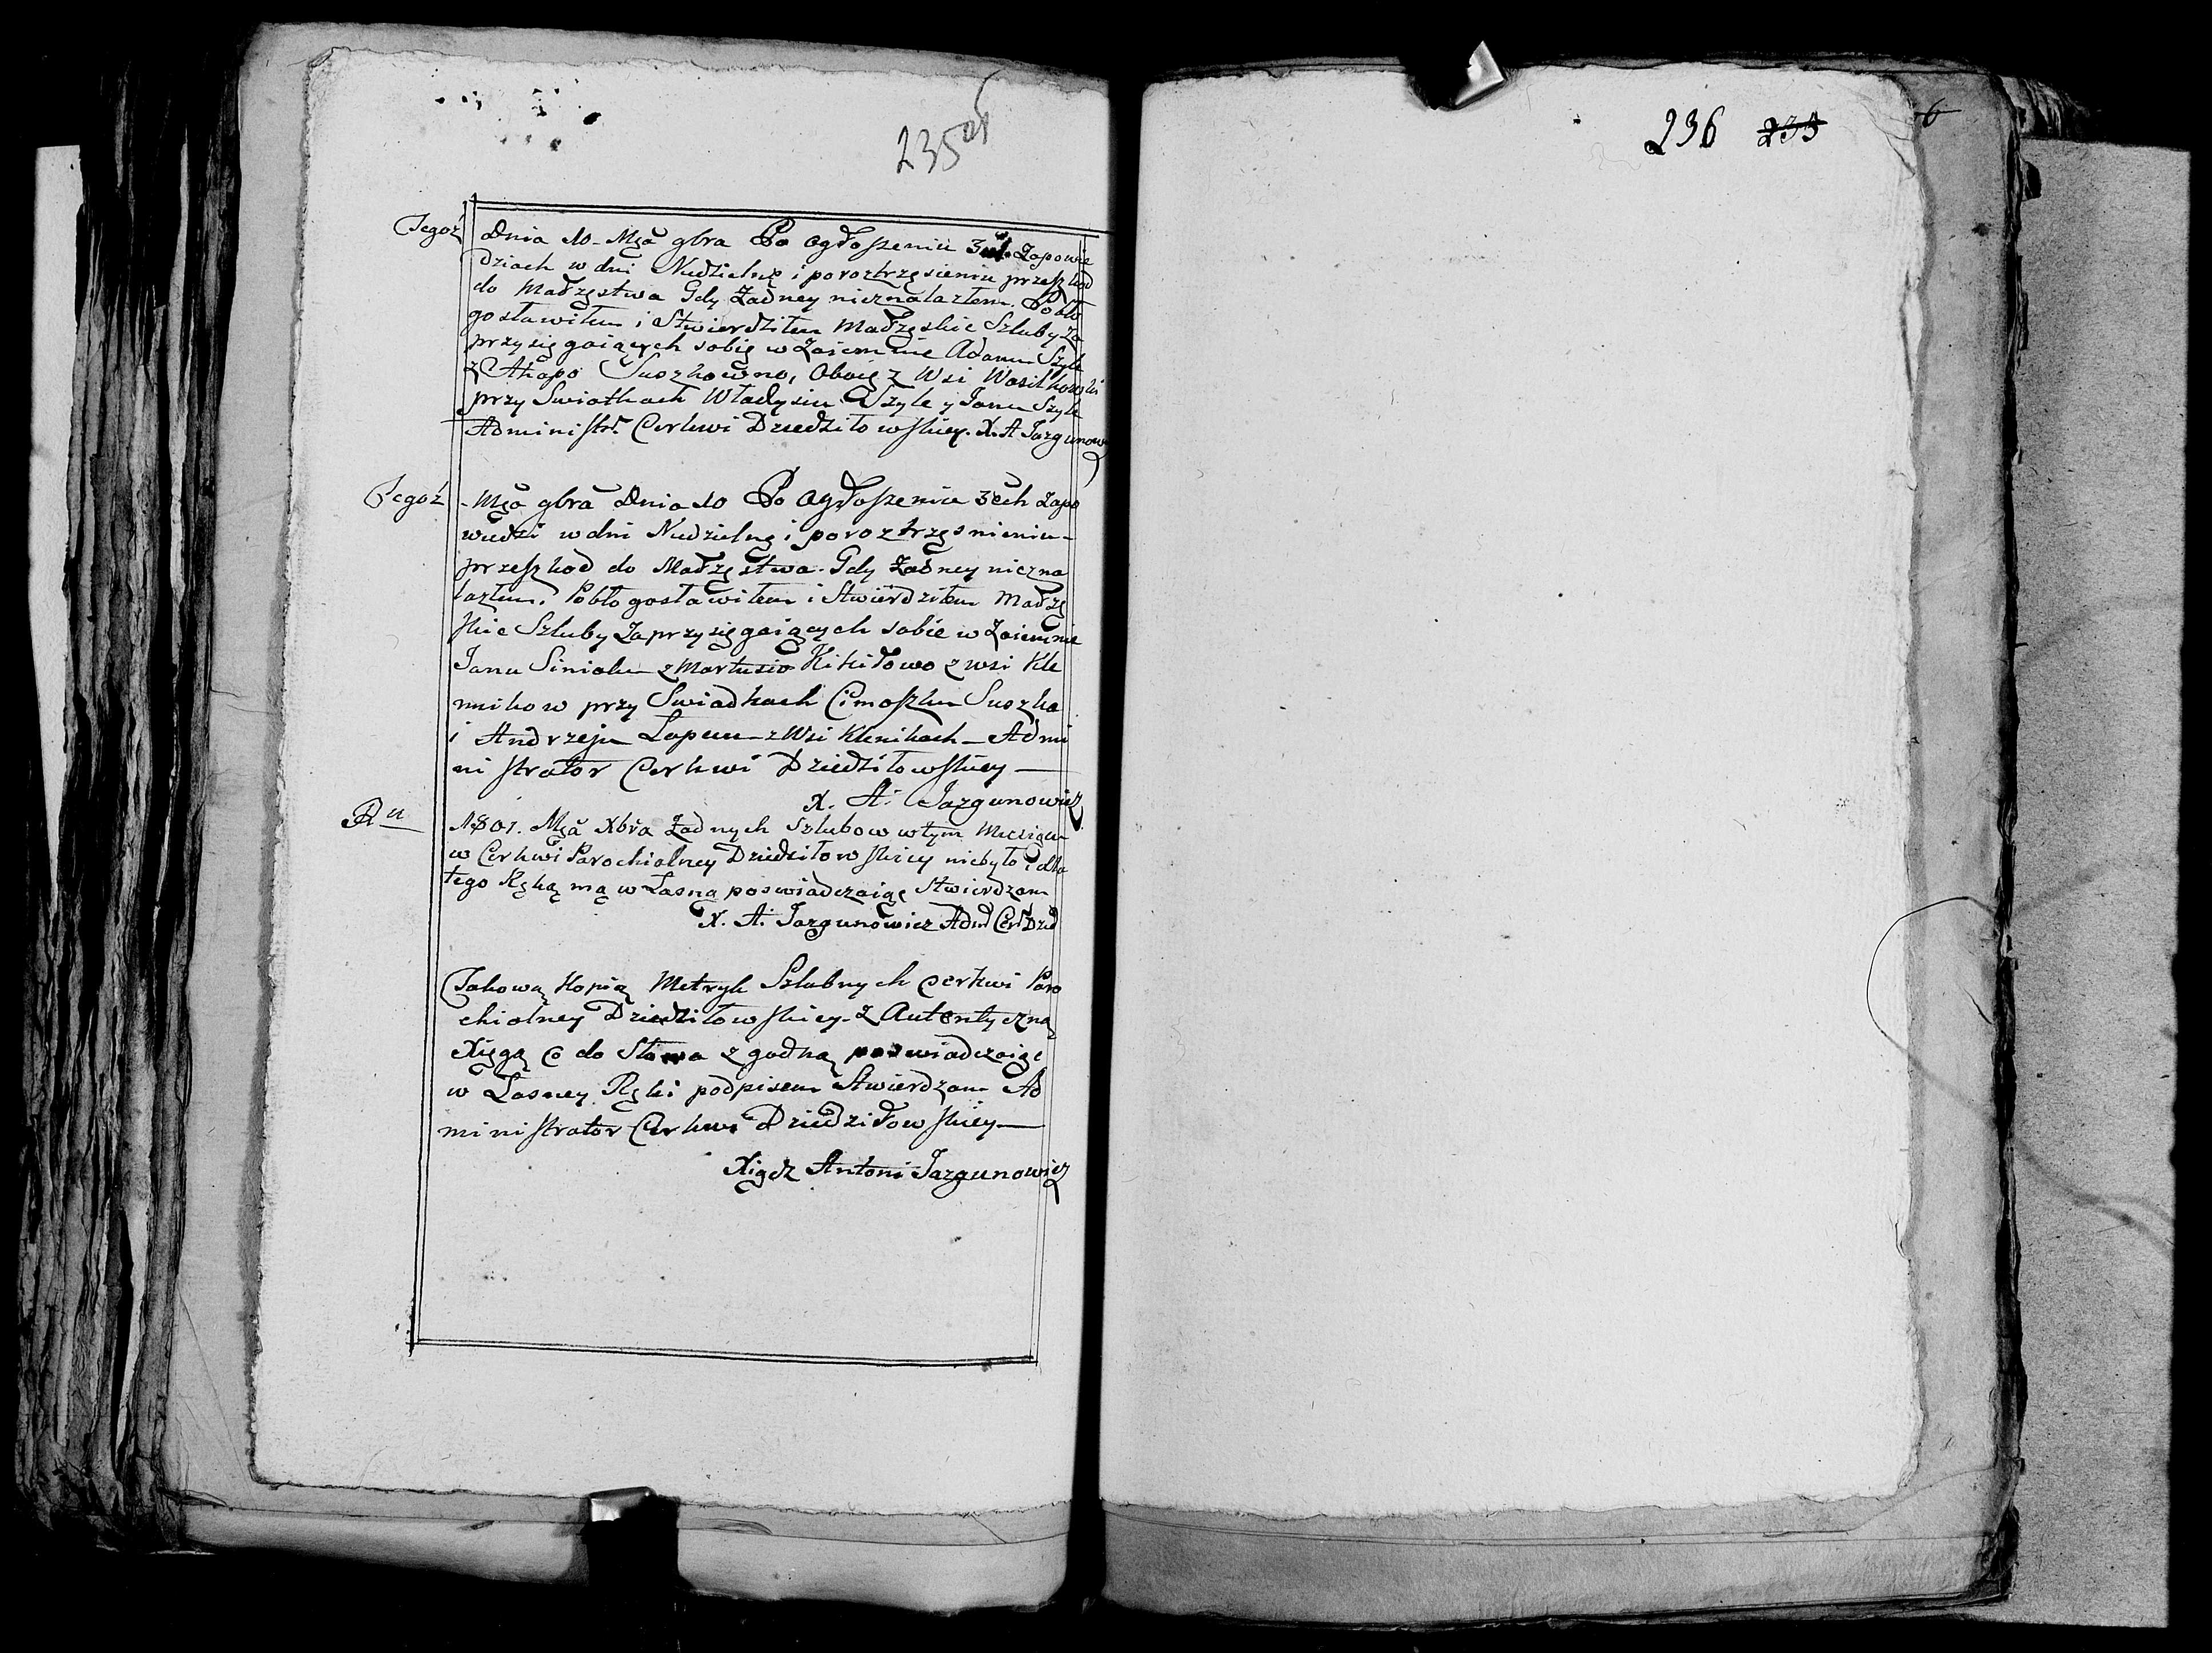 235 об
Tegoż Dnia 10 - Mca 9bra Po Ogłoszeniu Zapowie
dziach w dni Niedzielne i poroztrzęsieniu przeszkod
do Małżęstwa Gdy Żadney nieznalazłem. Pobło
gosławiłem i Stwierdziłem Małżęskie Szluby Za
przysięgaiących sobie w Zaiemnie Adama Szyle
z Ahapo Suszkowno, Oboie z Wsi Wasilkowki
przy Swiatkach Władysiu Szyle y Janu Szyle
Administr. Cerkwi Dziedziłowskiey. X. A Jazgunow
Tegoż - Mca 9bra Dnia 10 Po Ogłoszeniu 3ech Zapo
wiedzi w dni Niedzielne i poroztrzęsnieniu -
przeszkod do Małżęstwa. Gdy Żadney niezna
lazłem. Pobłogosławiłem i Stwierdziłem Małżę
skie Szluby Zaprzysięgaiących sobie w Zaiemnie
Janu Siniaku z Martusio Kikiłowo z wsi Kle
nnikow przy Swiadkach Cimoszku Suszka
i Andrzeju Łapuu z Wsi Klenikach - Admi
nistrator Cerkwi Dziedziłowskiey —
X. A. Jazgunowicz
Ru 1801. Mca Xbra Żadnych Szlubow w tym Miesiącu
w Cerkwi Parochialney Dziedziłowskiey niebyło i dla
tego Ręką mą w Łasną poswiadczaiąc Stwierdzam
X. A. Jazgunowicz Adm Cer Dzied
Takową Kopią Metryk Szlubnych Cerkwi Paro
chialney Dziedziłowskiey. Z Autentyczną
Xięgą Co do Słowa zgodną poswiadczaiąc
w Łasney Ręki podpisem Stwierdzam Ad
ministrator Cerkwi Dziedziłowskiey —
Xiądz Antoni Jazgunowicz
236 235